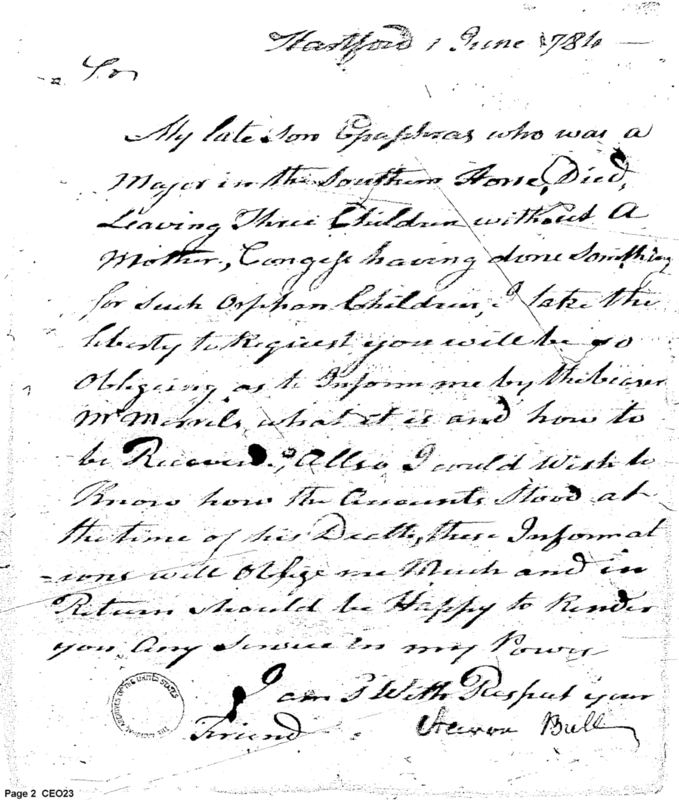 Hartford 1 June 1784
Sir
My late Son Epaphras who was a
Major in the Southern Horse, Died,
Leaving Three Children without A
Mother, Congess having done Something
for such orphan Children, I take the
liberty to Request you will be so
Obligeing as to Inform me by the bearer
Mr Merrils what it is and how to
be Receved, Allso I could Wish to
Know how the Accounts Stood at
the time of his Death, these Informat
=ions will Oblige me Much and in
Return should be Happy to Render
you Any Service in my Power
I am Sr With Respect your
Friend Aaron Bull
THE NATIONAL ARCHIVES OF THE UNITED STATES
Page 2 CEO23